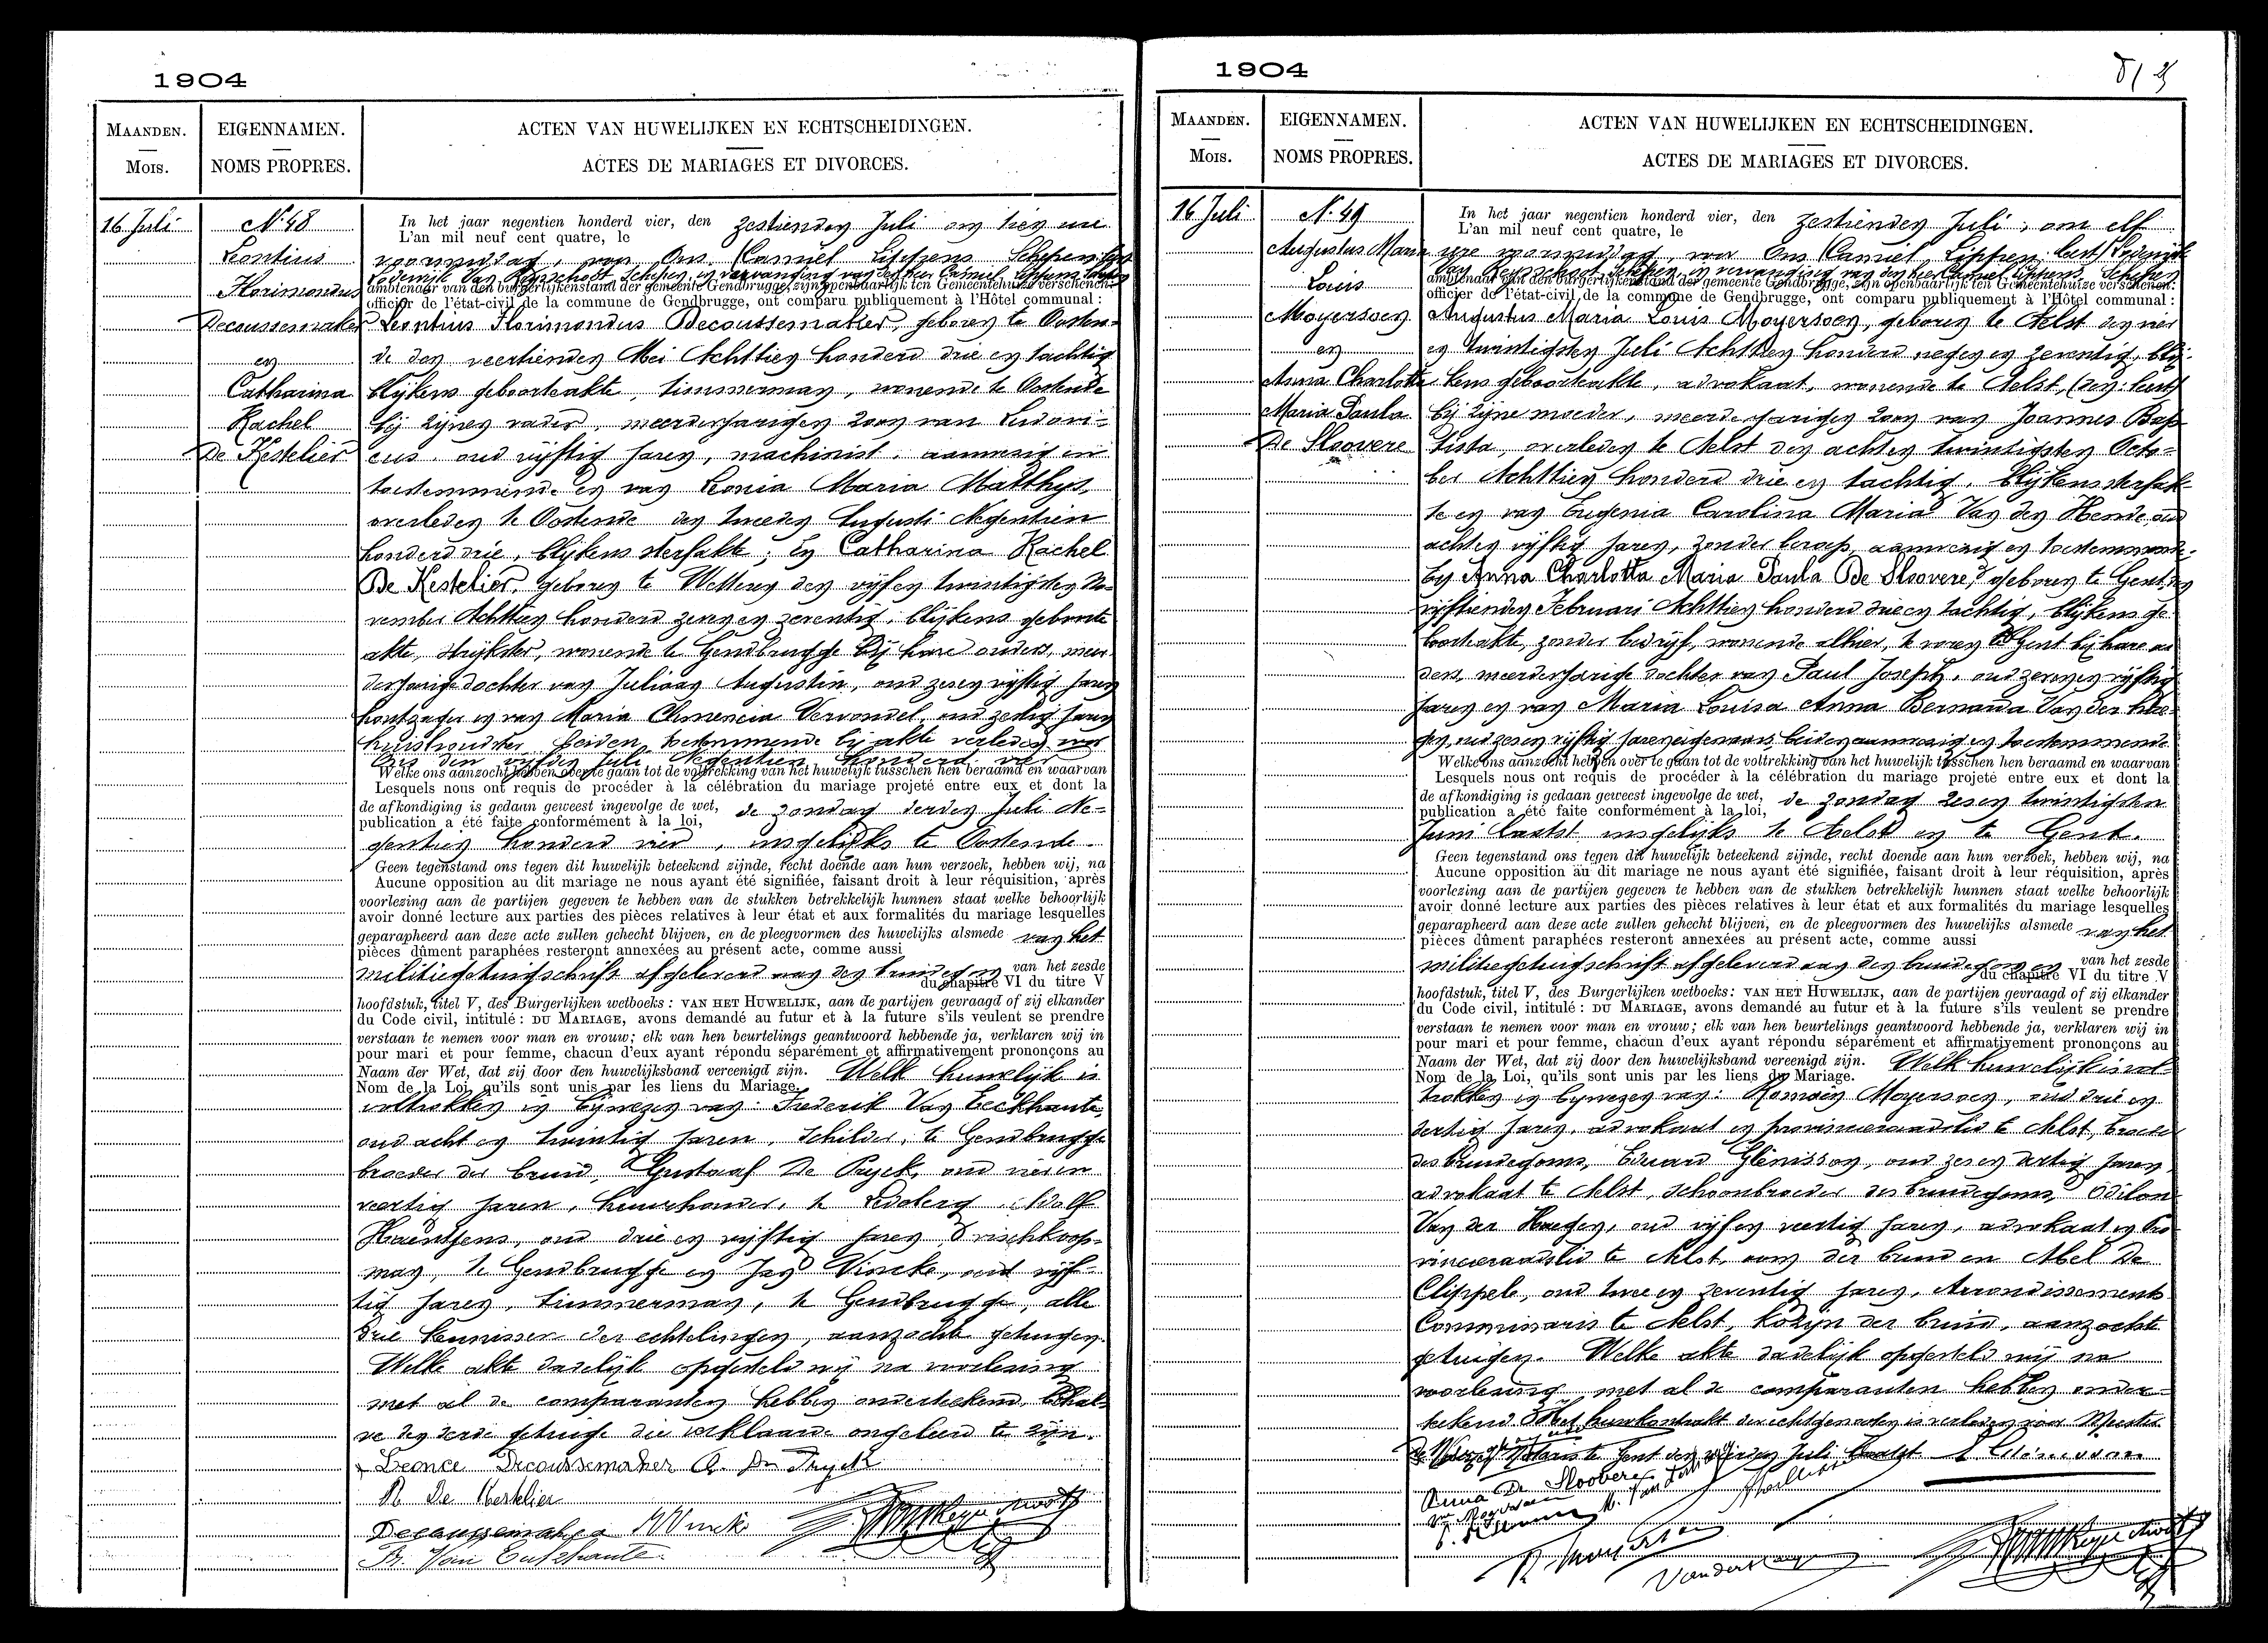 1904
MAANDEN.
Mois.
EIGENNAMEN.
NOMS PROPRES.
ACTEN VAN HUWELIJKEN EN ECHTSCHEIDINGEN.
ACTES DE MARIAGES ET DIVORCES.
16 Juli
N. 48
Leontius
Florimondus
Decoussemaker
en
Catharina
Rachel
De Kestelier
In het jaar negentien honderd vier, den zestienden Juli om tien ure
L'an mil neuf cent quatre, le
voormiddag, voor Ons Camiel Lippens Schepen
Lodewijk Van Rysschoot, Schepen, in vervanging van den heer Camiel Lippens
ambtenaar van den burgerlijkenstand der gemeente Gendbrugge, zijn openbaarlijk ten Gemeentehuize verschenen:
officier de l'état-civil de la commune de Gendbrugge, ont comparu publiquement à l'Hôtel communal:
Leontius Florimondus Decoussemaker, geboren te Oosten-
de den veertienden Mei Achttien honderd drie en tachtig
blijkens geboorteakte, timmerman, wonende te Oostende
bij zijnen vader, meerderjarigen zoon van Ludovi-
cus, oud vijftig jaren, machinist, aanwezig en
toestemmende en van Leonia Maria Matthys,
overleden te Oostende den tweeden Augusti Negentien
honderd drie, blijkens sterfakte; En Catharina Rachel
De Kestelier, geboren te Wetteren den vijf en twintigsten No-
vember Achttien honderd zeven en zeventig, blijkens geboorte
akte, strijkster, wonende te Gendbrugge bij hare ouders, meer-
derjarige dochter van Juliaan Augustin, oud zes en vijftig jaren
houtzager en van Maria Clemencia Vervondel, oud zestig jaren
huishoudster, beiden toestemmende bij akte verleden voor
Ons den vijfden Juli Negentien honderd vier
Welke ons aanzocht hebben over te gaan tot de voltrekking van het huwelijk tusschen hen beraamd en waarvan
Lesquels nous ont requis de procéder à la célébration du mariage projeté entre eux et dont la
de afkondiging is gedaan geweest ingevolge de wet, de zondag derden Juli Ne-
publication a été faite conformément à la loi,
gentien honderd vier, insgelijks te Oostende
Geen tegenstand ons tegen dit huwelijk beteekend zijnde, recht doende aan hun verzoek, hebben wij, na
Aucune opposition au dit mariage ne nous ayant été signifiée, faisant droit à leur réquisition, après
voorlezing aan de partijen gegeven te hebben van de stukken betrekkelijk hunnen staat welke behoorlijk
avoir donné lecture aux parties des pièces relatives à leur état et aux formalités du mariage lesquelles
geparapheerd aan deze acte zullen gehecht blijven, en de pleegvormen des huwelijks alsmede van het
pièces dûment paraphées resteront annexées au présent acte, comme aussi
militiegetuigschrift afgeleverd aan den bruidegom en van het zesde
du chapitre VI du titre V
hoofdstuk, titel V, des Burgerlijken wetboeks: VAN HET HUWELIJK, aan de partijen gevraagd of zij elkander
du Code civil, intitulé: DU MARIAGE, avons demandé au futur et à la future s'ils veulent se prendre
verstaan te nemen voor man en vrouw; elk van hen beurtelings geantwoord hebbende ja, verklaren wij in
pour mari et pour femme, chacun d'eux ayant répondu séparément et affirmativement prononçons au
Naam der Wet, dat zij door den huwelijksband vereenigd zijn. Welk huwelijk is
Nom de la Loi, qu'ils sont unis par les liens du Mariage.
voltrokken in bijwezen van: Frederik Van Eeckhaute,
oud acht en twintig jaren, schilder, te Gendbrugge
broeder der bruid, Gustaaf De Pryck, oud vier en
veertig jaren, huurhouder, te Ledeberg, Adolf
Haentjens, oud drie en vijftig jaren, vischkoop-
man, te Gendbrugge en Jan Vincke, oud vijf-
tig jaren, timmerman, te Gendbrugge, alle
drie kennissen der echtelingen, aanzochte getuigen.
Welke akte dadelijk opgesteld wij na voorlezing
met al de comparanten hebben onderteekend, behal-
ve den derde getuige die verklaarde ongeleerd te zijn.
Leonce Decoussemaker G. De Pryck
R De Kestelier
Decoussemaker Vincke
Fr. Van Eeckhaute
1904
MAANDEN.
Mois.
EIGENNAMEN.
NOMS PROPRES.
ACTEN VAN HUWELIJKEN EN ECHTSCHEIDINGEN.
ACTES DE MARIAGES ET DIVORCES.
16 Juli
N. 49
Augustus Maria
Louis
Moyersoen
en
Anna Charlotta
Maria Paula
De Sloovere
In het jaar negentien honderd vier, den zestienden Juli, om elf
L'an mil neuf cent quatre, le
ure voormiddag, voor Ons Camiel Lippens Lodewijk
Van Rysschoot Schepen in vervanging van den heer Camiel Lippens, Schepen
ambtenaar van den burgerlijkenstand der gemeente Gendbrugge, zijn openbaarlijk ten Gemeentehuize verschenen:
officier de l'état-civil de la commune de Gendbrugge, ont comparu publiquement à l'Hôtel communal:
Augustus Maria Louis Moyersoen, geboren te Aelst den vier
en twintigsten Juli Achttien honderd negen en zeventig, blij-
kens geboorteakte, advokaat, wonende te Aelst,
bij zijne moeder, meerderjarigen zoon van Joannes Bap-
tista, overleden te Aelst den acht en twintigsten Octo-
ber Achttien honderd drie en tachtig, blijkens sterfak-
te en van Eugenia Carolina Maria Van den Hende, oud
acht en vijftig jaren, zonder beroep, aanwezig en toestemmende.
En Anna Charlotta Maria Paula De Sloovere, geboren te Gent, den
vijftienden Februari Achttien honderd drie en tachtig, blijkens ge-
boorteakte, zonder bedrijf, wonende alhier, te voren te Gent bij hare ou-
ders, meerderjarige dochter van Paul Joseph, oud zeven en vijftig
jaren en van Maria Louisa Anna Bernarda Van der
oud zes en vijftig jaren, eigenaars, beiden aanwezig en toestemmende
Welke ons aanzocht hebben over te gaan tot de voltrekking van het huwelijk tusschen hen beraamd en waarvan
Lesquels nous ont requis de procéder à la célébration du mariage projeté entre eux et dont la
de afkondiging is gedaan geweest ingevolge de wet, de zondag zes en twintigsten
publication a été faite conformément à la loi,
Juni laatst insgelijks te Aelst en te Gent.
Geen tegenstand ons tegen dit huwelijk beteekend zijnde, recht doende aan hun verzoek, hebben wij, na
Aucune opposition au dit mariage ne nous ayant été signifiée, faisant droit à leur réquisition, après
voorlezing aan de partijen gegeven te hebben van de stukken betrekkelijk hunnen staat welke behoorlijk
avoir donné lecture aux parties des pièces relatives à leur état et aux formalités du mariage lesquelles
geparapheerd aan deze acte zullen gehecht blijven, en de pleegvormen des huwelijks alsmede van het
pièces dûment paraphées resteront annexées au présent acte, comme aussi
militiegetuigschrift afgeleverd aan den bruidegom en van het zesde
du chapitre VI du titre V
hoofdstuk, titel V, des Burgerlijken wetboeks: VAN HET HUWELIJK, aan de partijen gevraagd of zij elkander
du Code civil, intitulé: DU MARIAGE, avons demandé au futur et à la future s'ils veulent se prendre
verstaan te nemen voor man en vrouw; elk van hen beurtelings geantwoord hebbende ja, verklaren wij in
pour mari et pour femme, chacun d'eux ayant répondu séparément et affirmativement prononçons au
Naam der Wet, dat zij door den huwelijksband vereenigd zijn. Welk huwelijk is vol-
Nom de la Loi, qu'ils sont unis par les liens du Mariage.
trokken in bijwezen van: Romain Moyersoen, oud drie en
dertig jaren, advokaat en provincieraadslid te Aelst, broeder
des bruidegoms, Eduard Glénisson, oud zes en dertig jaren,
advokaat te Aelst, schoonbroeder des bruidegoms, Odilon
Van der Haegen, oud vijf en veertig jaren, advokaat en Pro-
vincieraadslid te Aelst, oom der bruid en Abel De
Clippele, oud twee en zeventig jaren, Arrondissements
Commissaris te Aelst, kozijn der bruid, aanzochte
getuigen. Welke akte dadelijk opgesteld wij na
voorlezing met al de comparanten hebben onder-
teekend. Het huwkontrakt der echtgenooten is verleden voor Meester
Notaris te Gent den Juli laatst Glénisson
Anna De Sloovere
R. Moyersoen
Vanderhaegen